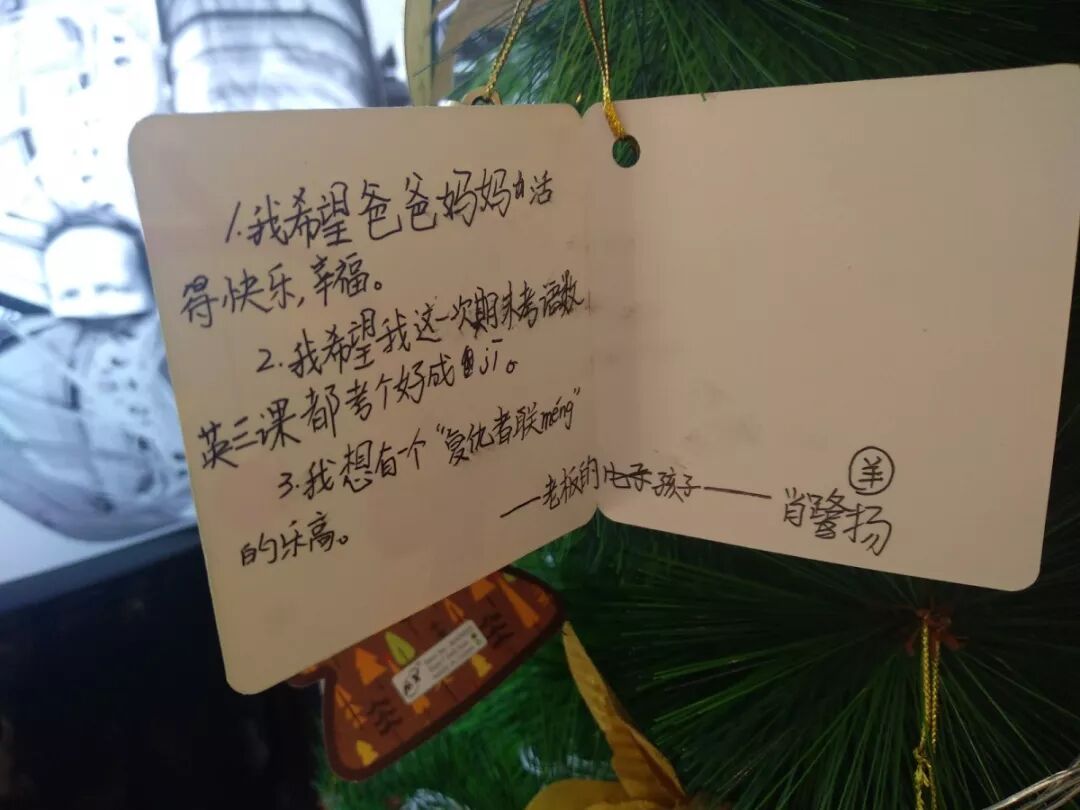 1.我希望爸爸妈妈活
得快乐,幸福。
2.我希望我这一次期末考语数
英三课都考个好成jī。
3.我想有一个“复仇者联méng”
的乐高。
——老板的孩子——肖鹭扬
羊